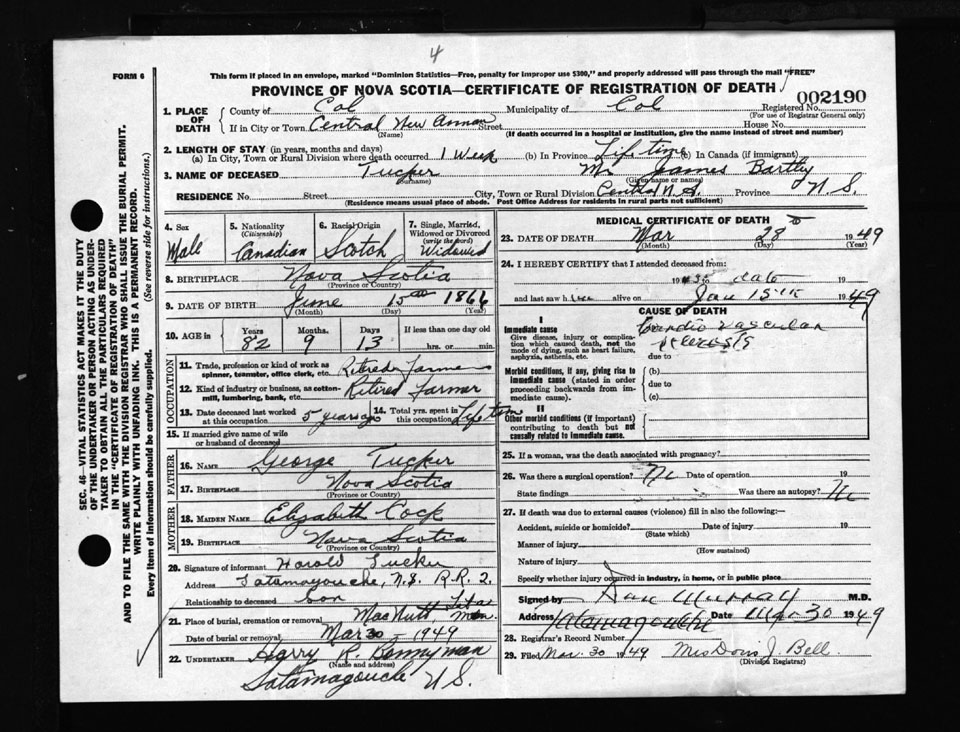 4
FORM 6
This form if placed in an envelope, marked "Dominion Statistics—Free, penalty for improper use $300," and properly addressed will pass through the mail "FREE"
PROVINCE OF NOVA SCOTIA—CERTIFICATE OF REGISTRATION OF DEATH
002190
1. PLACE OF DEATH County of Col Municipality of Col Registered No.
(For use of Registrar General only)
If in City or Town Central New Annan Street House No.
(Name) (If death occurred in a hospital or institution, give the name instead of street and number)
2. LENGTH OF STAY (in years, months and days)
(a) In City, Town or Rural Division where death occurred 1 Week (b) In Province Life time (c) In Canada (if immigrant)
3. NAME OF DECEASED Tucker Mr James Bartly
(Surname) (Given name or names)
RESIDENCE No. Street City, Town or Rural Division Central N.A. Province N.S.
(Residence means usual place of abode. Post Office Address for residents in rural parts not sufficient)
4. Sex Male
5. Nationality (Citizenship) Canadian
6. Racial Origin Scotch
7. Single, Married, Widowed or Divorced (write the word) Widowed
8. BIRTHPLACE Nova Scotia
(Province or Country)
9. DATE OF BIRTH June 15th 1866
(Month) (Day) (Year)
10. AGE in Years Months Days If less than one day old
82 9 13 hrs. or min.
OCCUPATION
11. Trade, profession or kind of work as spinner, teamster, office clerk, etc. Retired Farmer
12. Kind of industry or business, as cotton-mill, lumbering, bank, etc. Retired farmer
13. Date deceased last worked at this occupation 5 years ago
14. Total yrs. spent in this occupation Life time
15. If married give name of wife or husband of deceased
FATHER
16. NAME George Tucker
17. BIRTHPLACE Nova Scotia
(Province or Country)
MOTHER
18. MAIDEN NAME Elizabeth Cock
19. BIRTHPLACE Nova Scotia
(Province or Country)
20. Signature of informant Harold Tucker
Address Tatamagouche, N.S. R.R. 2.
Relationship to deceased Son
21. Place of burial, cremation or removal MacNutt,
Date of burial or removal Mar 30 - 1949
22. UNDERTAKER Harry R. Bonnyman
(Name and address)
Tatamagouche N.S.
MEDICAL CERTIFICATE OF DEATH
23. DATE OF DEATH Mar 28 1949
(Month) (Day) (Year)
24. I HEREBY CERTIFY that I attended deceased from:
19 to date 19
and last saw h alive on Jan 15th 1949
CAUSE OF DEATH
I
Immediate cause
Give disease, injury or complication which caused death, not the mode of dying, such as heart failure, asphyxia, asthenia, etc.
(a) Cardio vascular sclerosis
due to
Morbid conditions, if any, giving rise to immediate cause (stated in order proceeding backwards from immediate cause).
(b)
due to
(c)
II
Other morbid conditions (if important) contributing to death but not causally related to immediate cause.
25. If a woman, was the death associated with pregnancy?
26. Was there a surgical operation? No Date of operation 19
State findings Was there an autopsy? No
27. If death was due to external causes (violence) fill in also the following:
Accident, suicide or homicide? Date of injury 19
(State which)
Manner of injury
(How sustained)
Nature of injury
Specify whether injury occurred in industry, in home, or in public place
Signed by Dan Murray M.D.
Address Tatamagouche Date Mar 30 1949
28. Registrar's Record Number
29. Filed Mar. 30 1949 Mrs Doris J. Bell.
(Division Registrar)
SEC. 46—VITAL STATISTICS ACT MAKES IT THE DUTY
OF THE UNDERTAKER OR PERSON ACTING AS UNDER-
TAKER TO OBTAIN ALL THE PARTICULARS REQUIRED
IN THE "CERTIFICATE OF REGISTRATION OF DEATH"
AND TO FILE THE SAME WITH THE DIVISION REGISTRAR WHO SHALL ISSUE THE BURIAL PERMIT.
WRITE PLAINLY WITH UNFADING INK. THIS IS A PERMANENT RECORD.
Every item of information should be carefully supplied. (See reverse side for instructions.)